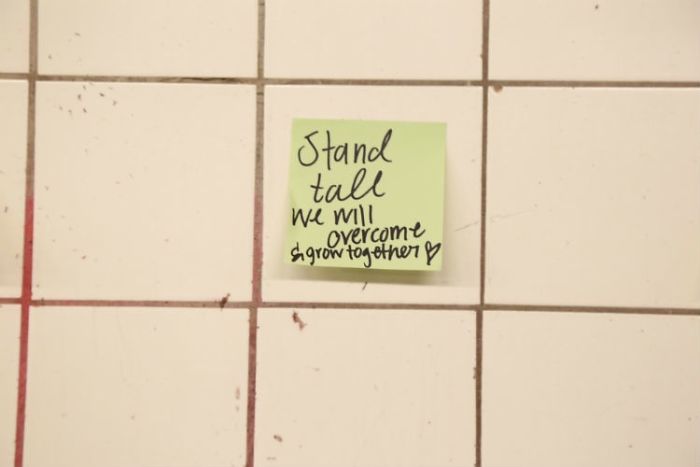 Stand
tall
we will
overcome
& grow together ♡